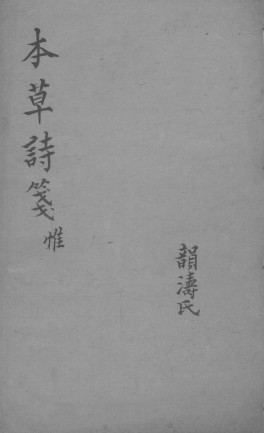 韻濤氏
本草詩箋 惟